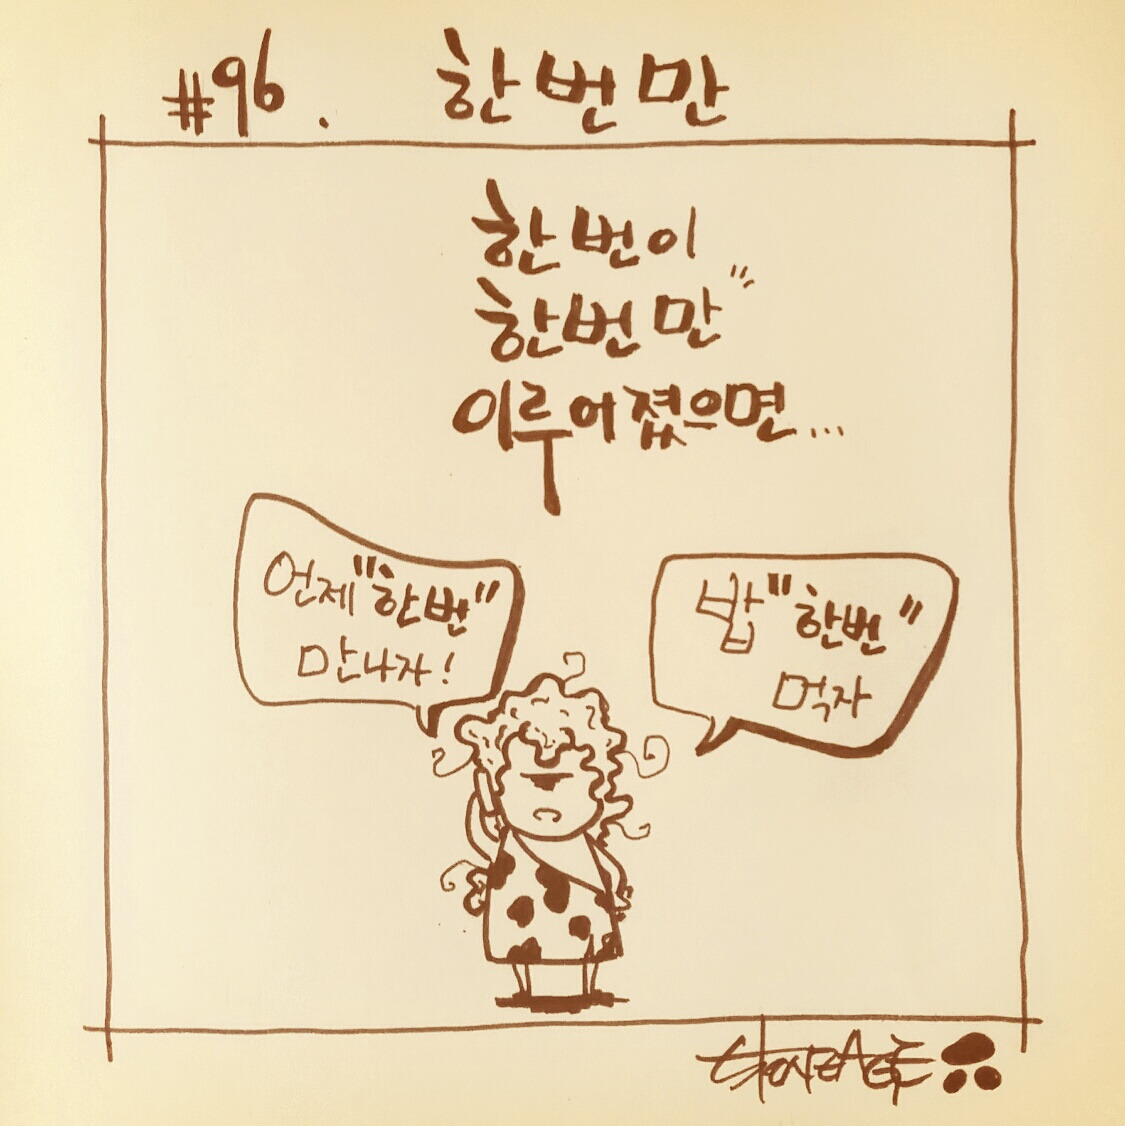 #96. 한번만
한번이
한번만"
이루어졌으면...
언제 "한번"
만나자!
밥 "한번"
먹자
STONEAGE